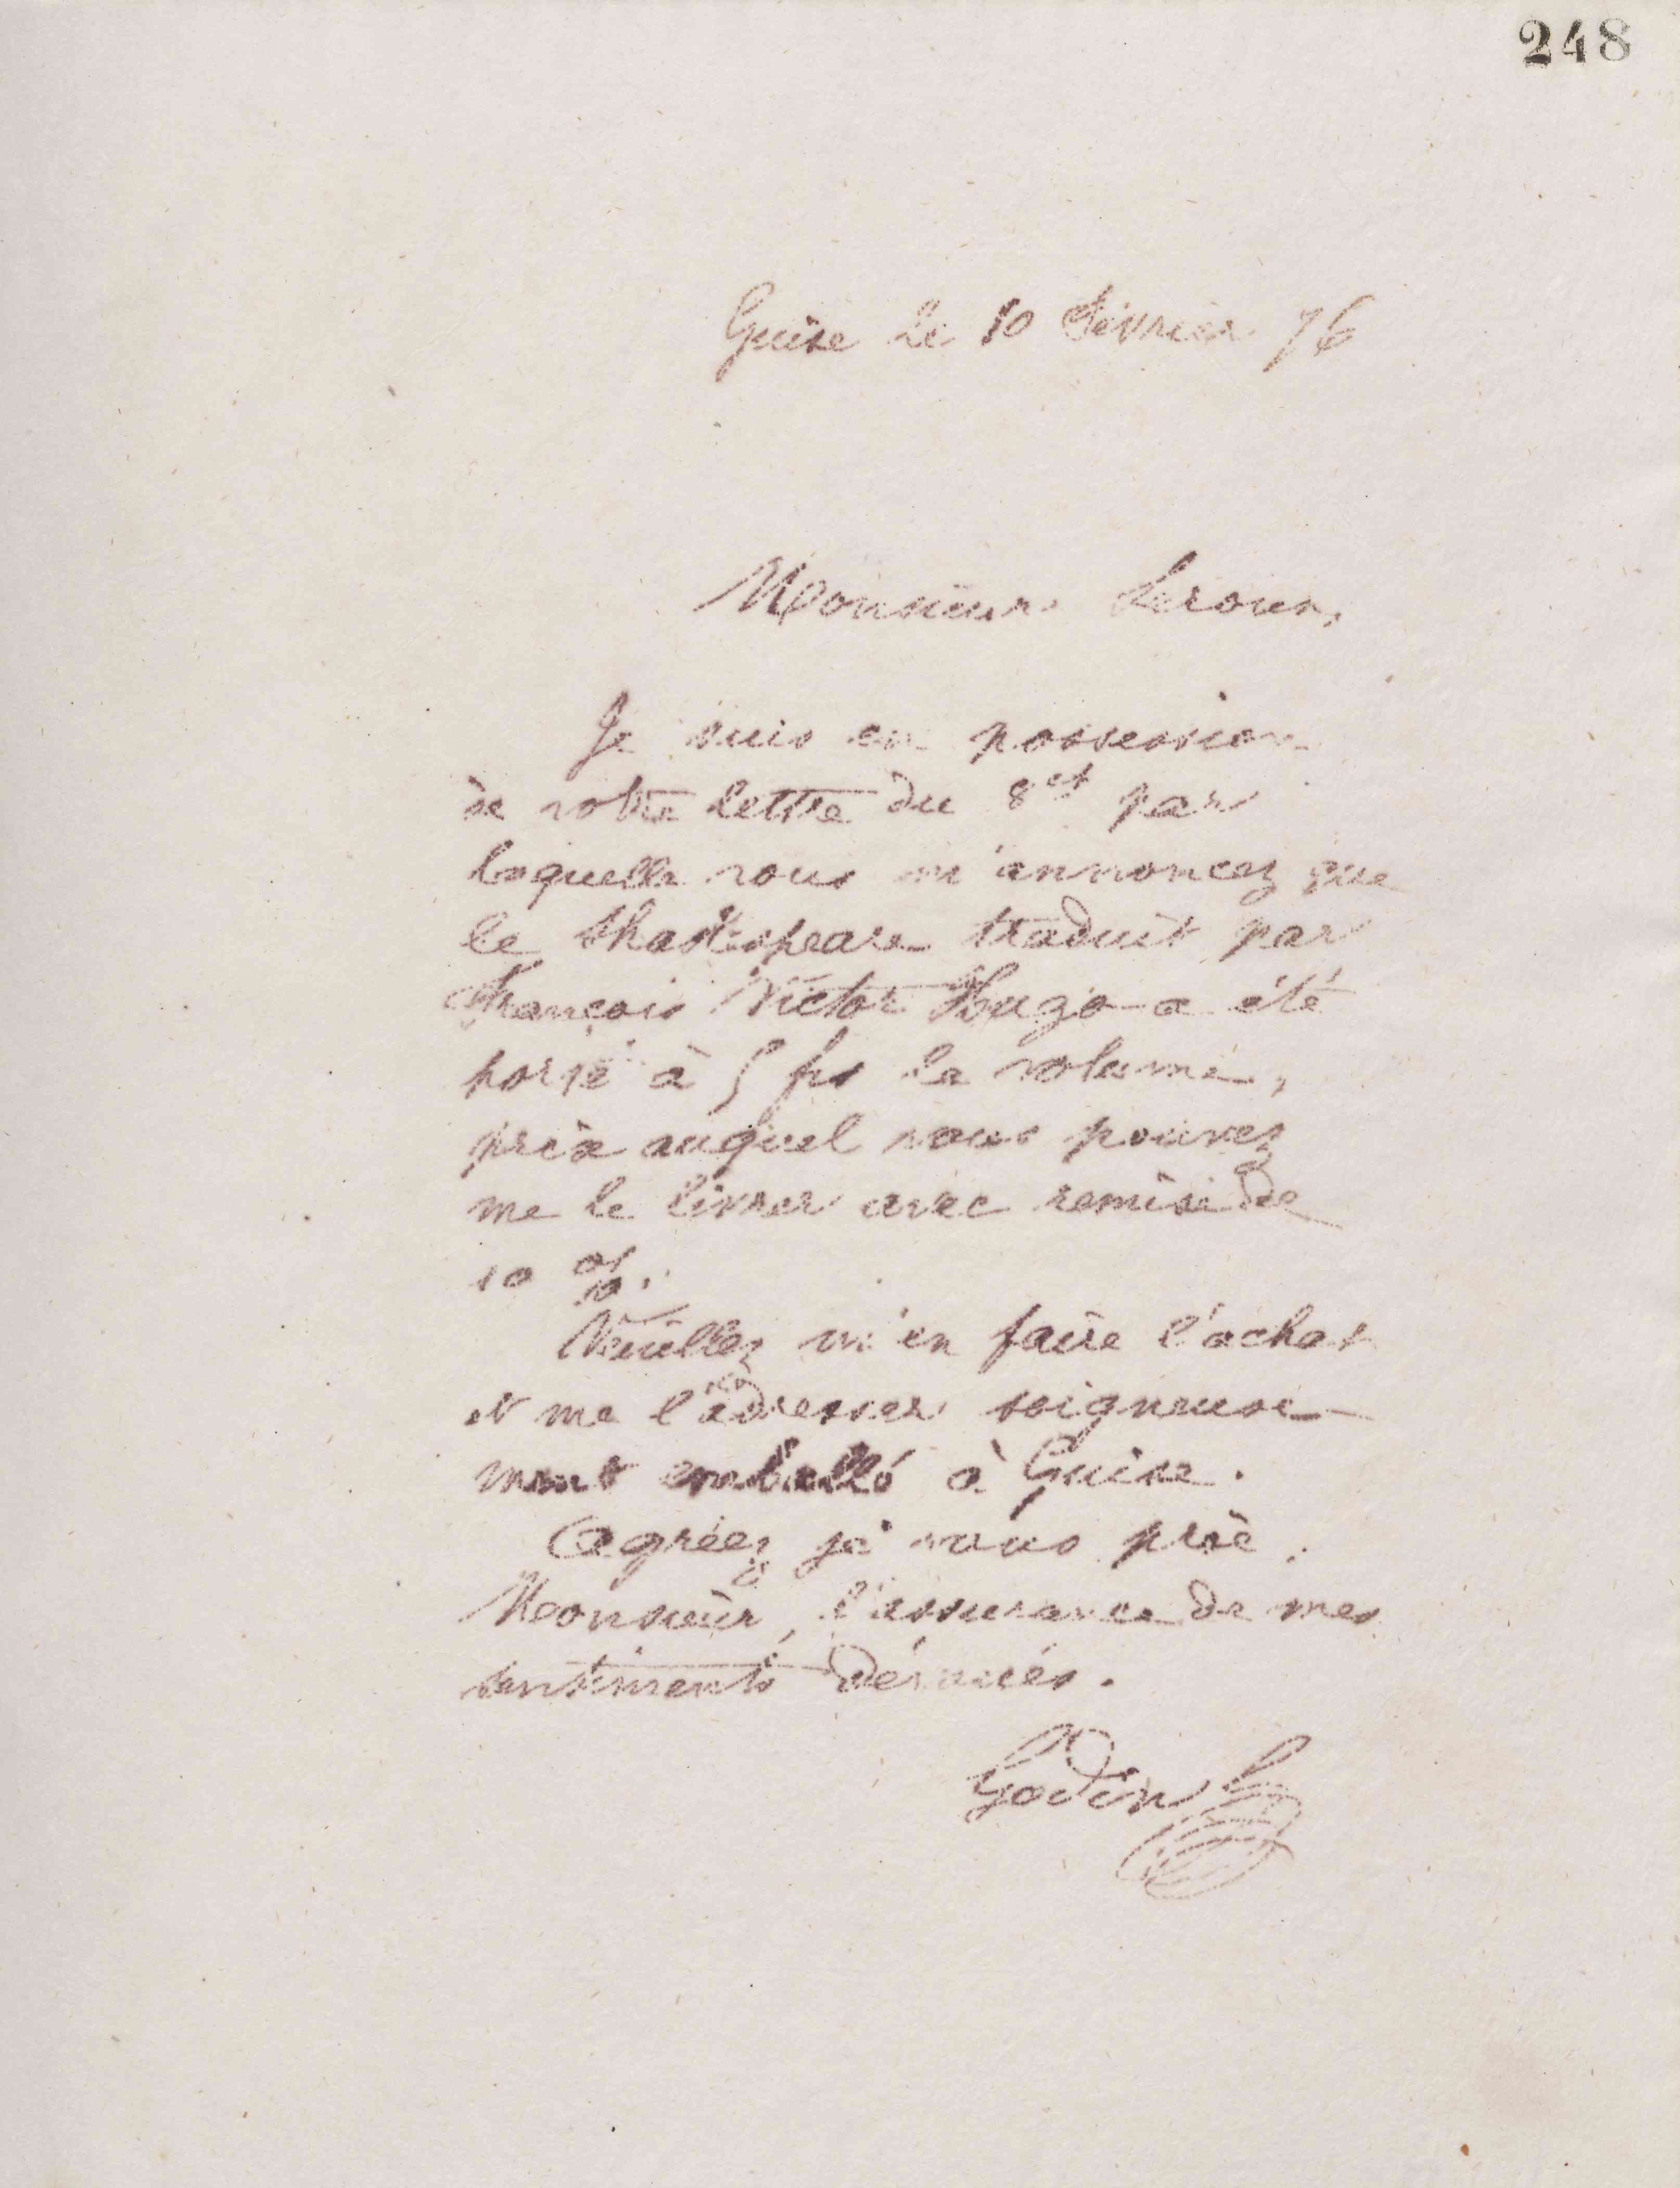 248
Guise le 10 Février 76
Monsieur Leroux,
Je suis en possession
de votre lettre du 8 ct par
laquelle vous m'annoncez que
le Shakespeare traduit par
François Victor Hugo a été
porté à 5 frs le volume,
prix auquel vous pouvez
me le livrer avec remise de
10 %.
Veuillez m'en faire l'achat
et me l'adresser soigneuse-
ment emballé à Guise.
Agréez je vous prie,
Monsieur, l'assurance de mes
sentiments dévoués.
Godin